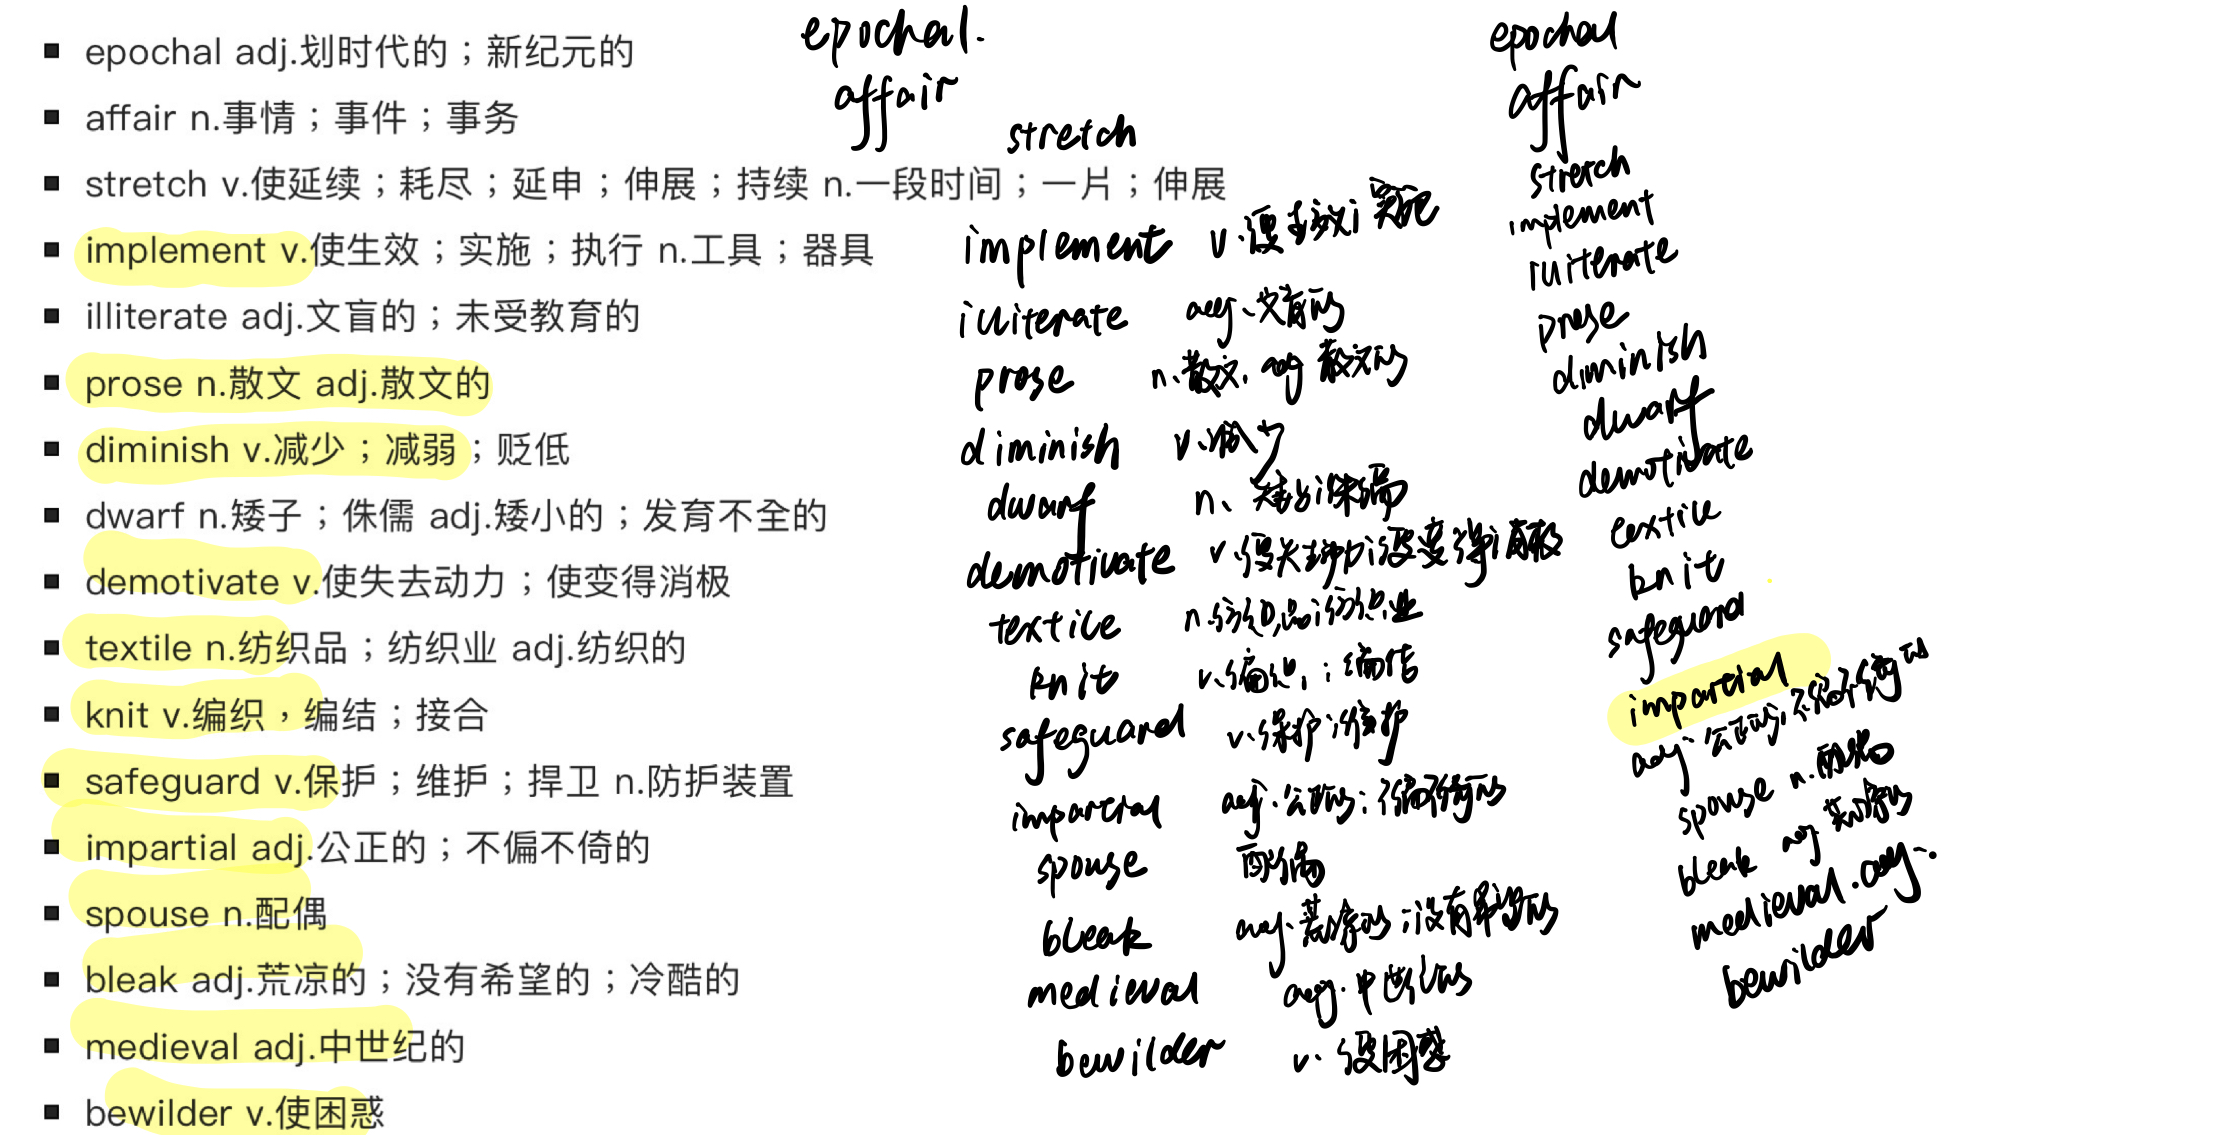 epochal adj.划时代的；新纪元的
affair n.事情；事件；事务
stretch v.使延续；耗尽；延申；伸展；持续 n.一段时间；一片；伸展
implement v.使生效；实施；执行 n.工具；器具
illiterate adj.文盲的；未受教育的
prose n.散文 adj.散文的
diminish v.减少；减弱；贬低
dwarf n.矮子；侏儒 adj.矮小的；发育不全的
demotivate v.使失去动力；使变得消极
textile n.纺织品；纺织业 adj.纺织的
knit v.编织，编结；接合
safeguard v.保护；维护；捍卫 n.防护装置
impartial adj.公正的；不偏不倚的
spouse n.配偶
bleak adj.荒凉的；没有希望的；冷酷的
medieval adj.中世纪的
bewilder v.使困惑
epochal.
affair
stretch
implement v.使生效；实施
illiterate adj.文盲的
prose n.散文. adj 散文的
diminish v.减少
dwarf n.矮子；侏儒
demotivate v.使失去动力；使变得消极
textile n.纺织品；纺织业
knit v.编织；编结
safeguard v.保护；维护
impartial adj.公正的；不偏不倚的
spouse 配偶
bleak adj.荒凉的；没有希望的
medieval adj.中世纪的
bewilder v.使困惑
epochal
affair
stretch
implement
illiterate
prose
diminish
dwarf
demotivate
textile
knit
safeguard
impartial
adj 公正的；不偏不倚的
spouse n.配偶
bleak adj.荒凉的
medieval.adj.
bewilder